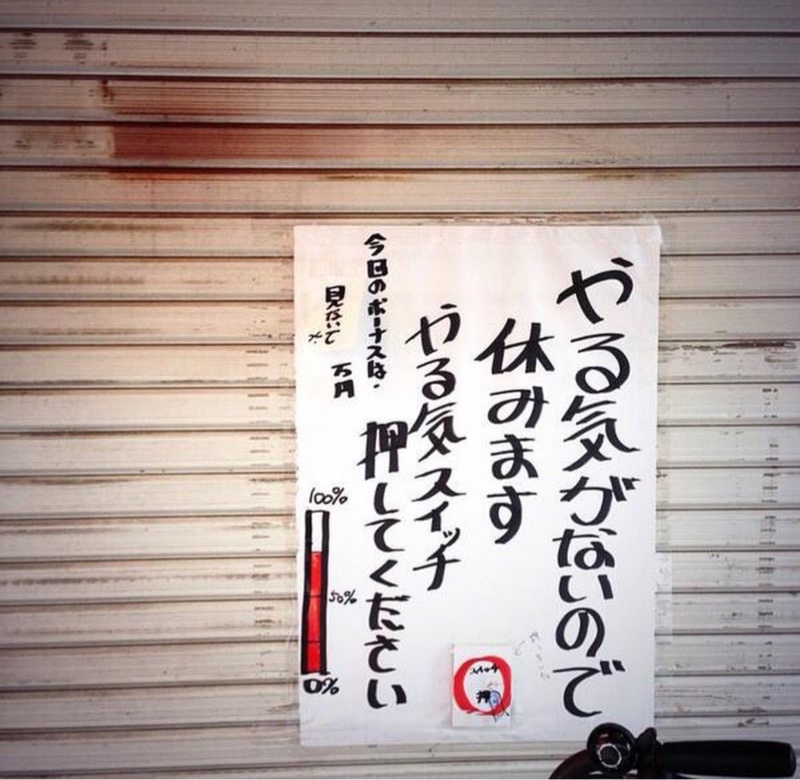 やる気がないので
休みます
やる気スイッチ
押してください
今日のボーナスは・
見ないで
万円
100%
50%
0%
スイッチ
押